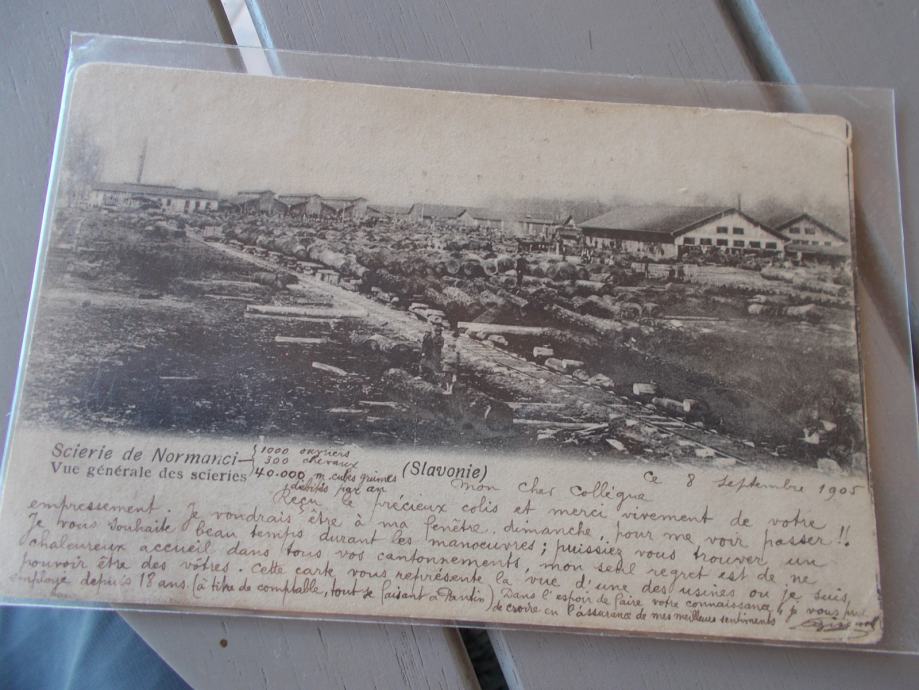 Scierie de Normanci
Vue générale des scieries
1000 ouvriers
300 chevaux
40.000 m. cubes grumes
débités par an
(Slavonie)
Ce 8 Septembre 1905
Mon cher Collègue
Reçu le précieux colis et merci vivement de votre
empressement. Je voudrais être à ma fenêtre, dimanche, pour me voir passer!!
Je vous souhaite beau temps durant les manœuvres; puissiez vous trouver un
chaleureux accueil dans tous vos cantonnements, mon seul regret est de ne
pouvoir être des vôtres. Cette carte vous représente la vue d'une des usines ou je suis,
employé depuis 18 ans. (à titre de comptable, tout se faisant à Pantin) Dans l'espoir de faire votre connaissance, je vous prie
de croire en l'assurance de mes meilleurs sentiments